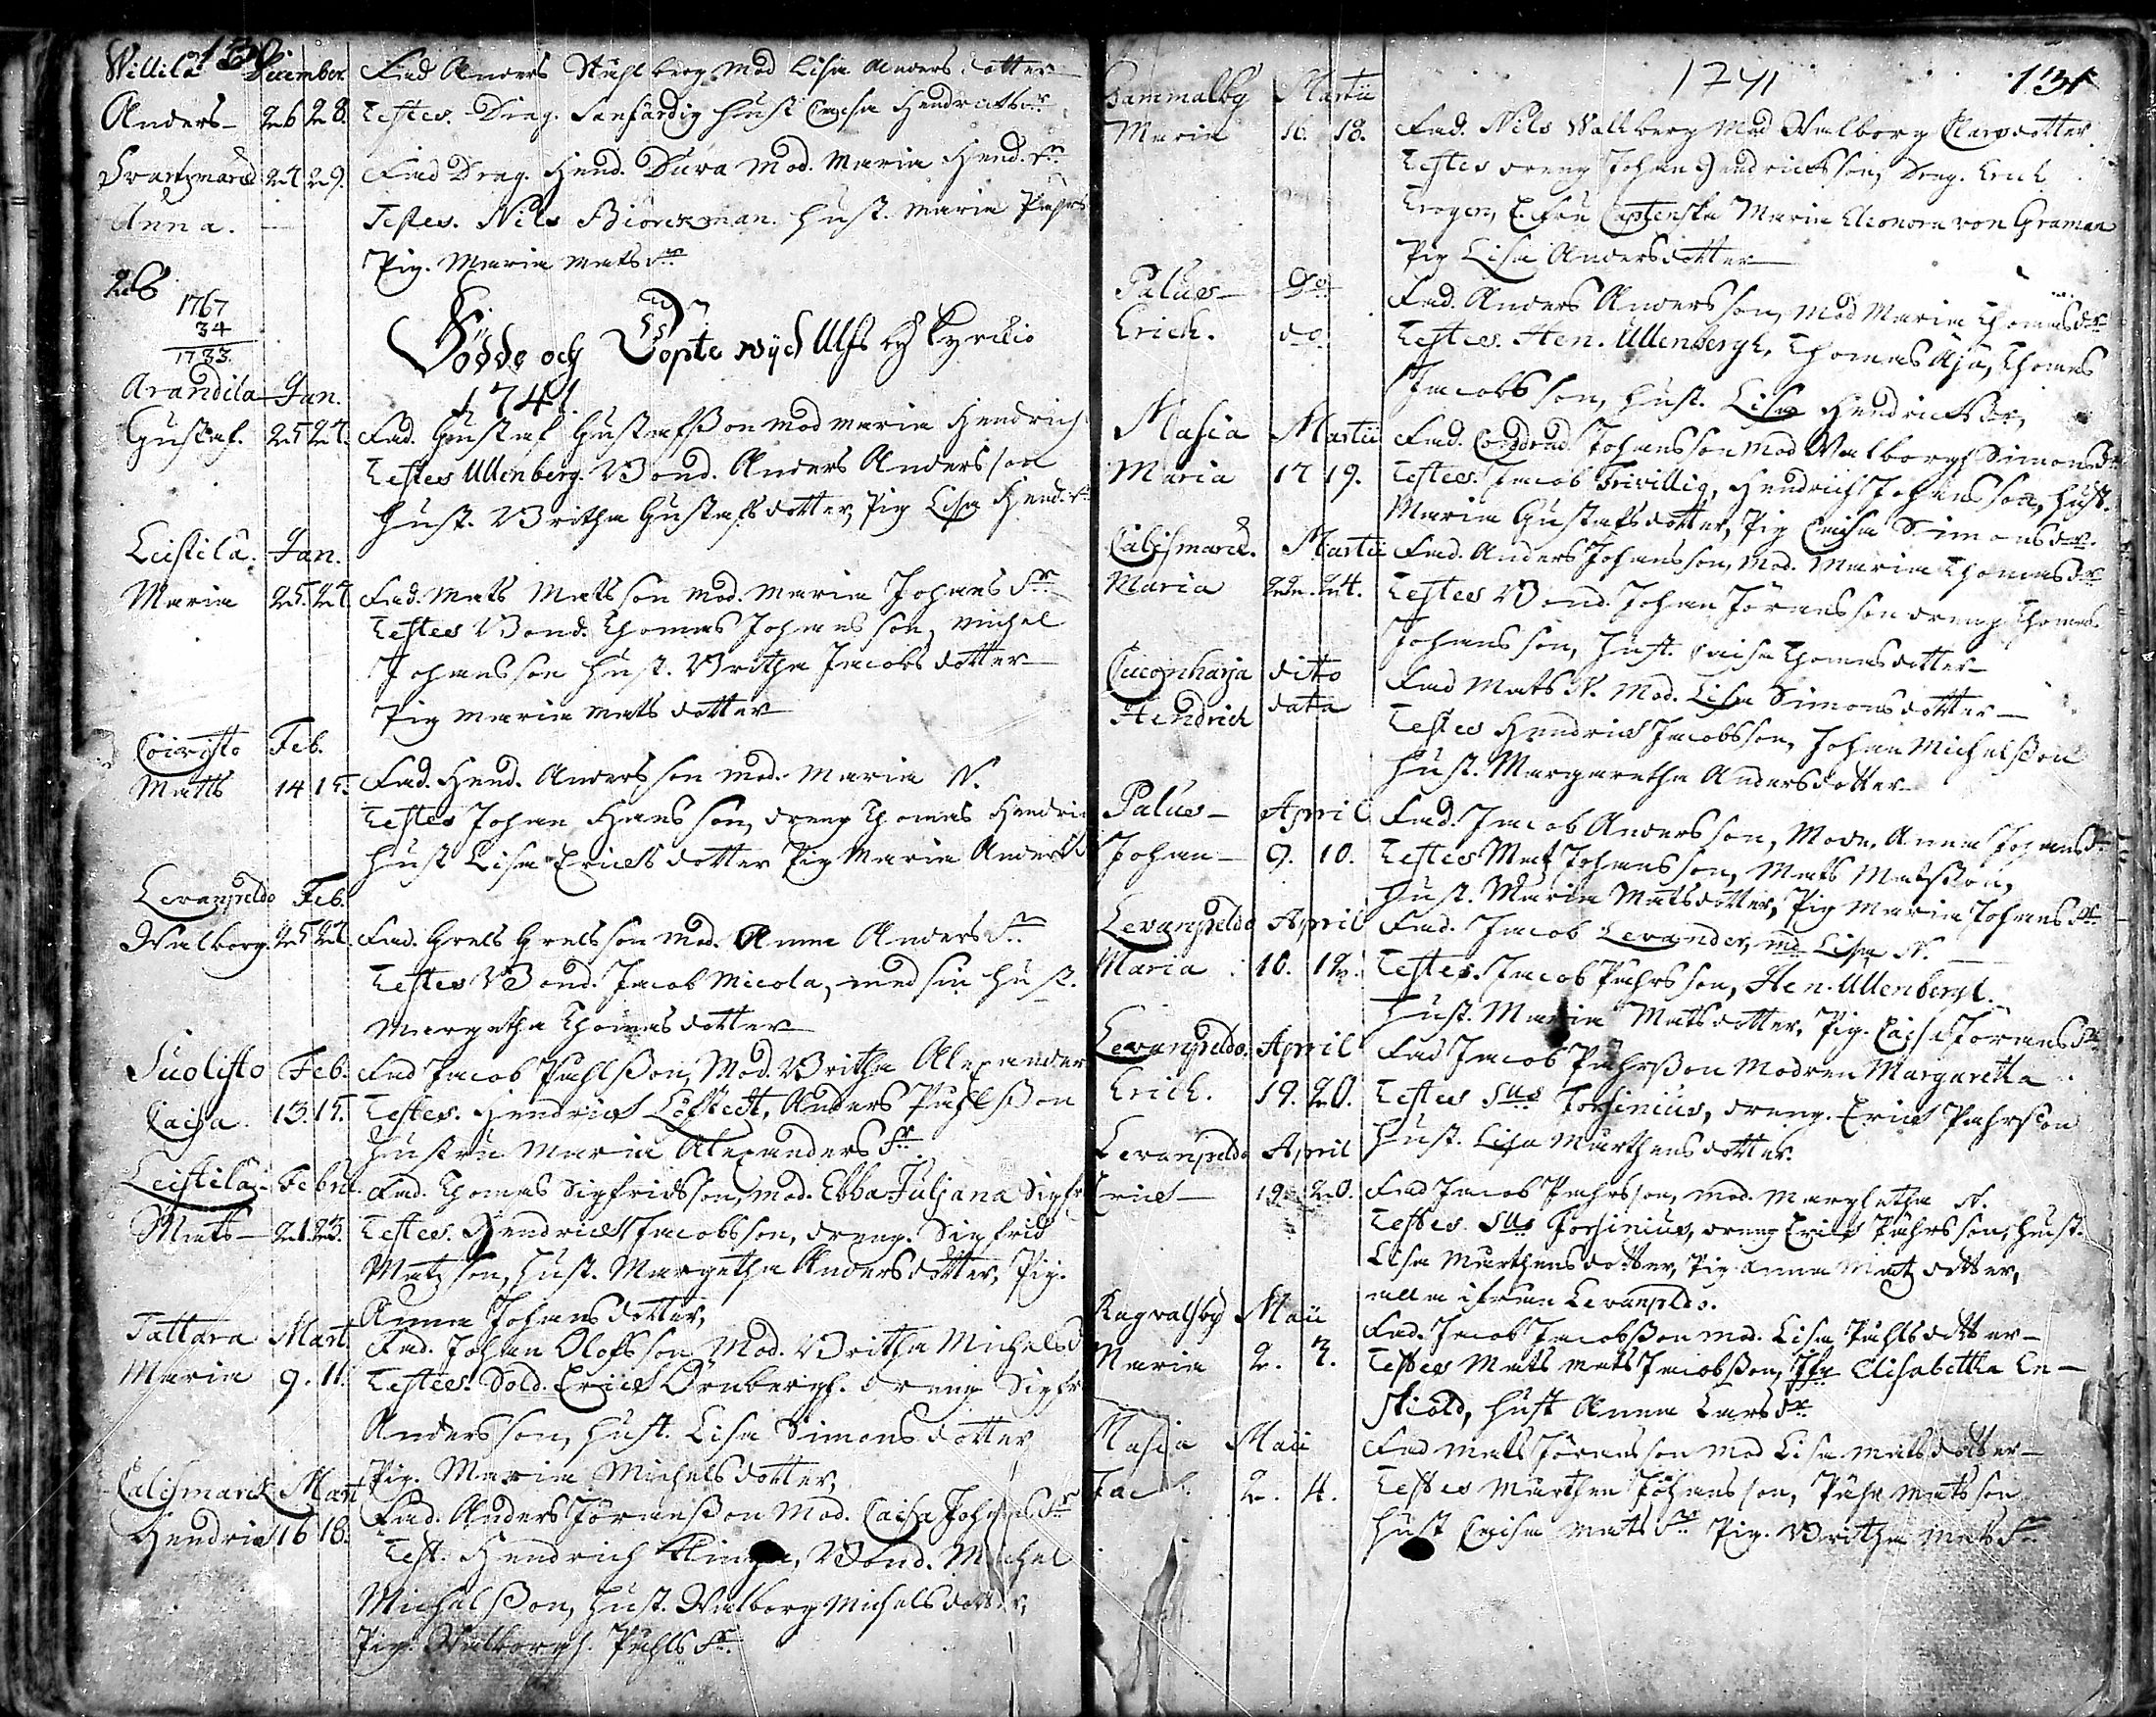 130
Willila December Fad Anders Stuhlberg Mod Lisa Andersdotter
Anders 26 28. Testes. Drag. Senfärdig hust Caisa Hendricksdr
Svartsmarck 27 29. Fad Drag. Hend. Duva Mod. Maria Hend. dr
Anna. Testes. Nils Biörckman. hust. Maria Påhrs
Pig. Maria Mats dr
26
1767
34
1733.
Födde och Döpte wijd Ulfsby Kyrckio
1741.
Arandila Jan.
Gustaf. 25 27. Fad. Gustaf Gustafsson Mod Maria Hendrich
Testes Ullenberg. Bond. Anders Andersson
hust. Britha Gustafsdotter, Pig Lisa Hend. dr
Leistila. Jan.
Maria 25. 27. Fad. Mats Matsson Mod. Maria Johans dr
Testes Bond. Thomas Johansson, Michel
Johansson hust. Britha Jacobsdotter
Pig Maria Matsdotter
Coivisto Feb.
Matts 14 15. Fad. Hend. Andersson Mod. Maria N.
Testes Johan Hansson, dreng Thomas Hendric
hust Lisa Ericksdotter Pig Maria Anders
Levanpeldo Feb.
Walborg 25 27. Fad. Grels Grelsson Mod. Anna Anders dr
Testes Bond. Jacob Micola, med sin hust.
Margetha Thomasdotter
Suolisto Feb. Fad Jacob Påhlsson, Mod. Britha Alexander
Caisa 13. 15. Testes. Hendrick Löfstedt, Anders Påhlsson
hustru Maria Alexanders dr
Leistila Febru. Fad. Thomas Sigfridsson, Mod. Ebba Juljana Sigfr
Mats 21. 23. Testes. Hendrick Jacobsson, dreng. Sigfrid
Matzson, hust. Margetha Andersdotter, Pig.
Anna Johansdotter,
Tattara Mart. Fad. Johan Olofsson Mod. Britha Michelsd
Maria 9. 11. Testes. Sold. Erick Örnbergh. dreng Sigfr
Andersson, hust. Lisa Simonsdotter
Pig. Maria Michelsdotter,
Calismarck Mart Fad. Anders Jöransson Mod. Caisa Johans dr
Hendric 16 18. Test. Hendrich Klinga, Bond. Michel
Michelsson, hust. Walborg Michelsdotter,
Pig. Walborgh. Påhls dr
1741 131
Gammalby Martii
Maria 16. 18. Fad. Nils Wallberg Mod Walborg Clausdotter
Testes dreng Johan Hendricksson, Drag. Erich
Trogen, E. Fru Captenska Maria Eleonora von Graman
Pig Lisa Andersdotter
Palus Do Fad. Anders Andersson, Mod Maria Thomasdr
Erich. do Testes. Hen. Ullenbergh, Thomas Äjä, Thomas
Jacobsson, hust. Lisa Hendricksdr,
Masia Martii Fad. Johansson Mod Walborgh Simonsdr
Maria 17 19. Testes. Jacob Frivillig, Hendrich Johansson, hust.
Maria Gustafsdotter, Pig Caisa Simonsdr.
Calismarck. Martii Fad. Anders Johansson, Mod. Maria Thomasdr
Maria 22. 24. Testes Bond. Johan Jöransson dreng Thomas
Johansson, hust. Caisa Thomasdotter
Cuconharja dito Fad Mats N. Mod. Lisa Simonsdotter
Hendrich data Testes Hendrick Jacobsson, Johan Michelsson
hust. Margaretha Andersdotter
Palus April Fad. Jacob Andersson, Modr. Anna Johansdr
Johan 9. 10. Testes Mats Johansson, Mats Matsson,
hust. Maria Matsdotter, Pig Maria Johans dr
Levanpeldo April Fad. Jacob Levander, Md Lisa N.
Maria 10. 12. Testes. Jacob Påhrsson, Hen. Ullenbergh.
hust. Maria Matsdotter, Pig. Caisa Jörans dr
Levanpeldo. April Fad Jacob Påhrsson Modren Margaretha
Erich. 19. 20. Testes Sus Forsinius, dreng. Erick Påhrsson
hust. Lisa Mårthensdotter.
Levanpeldo April
Erick 19. 20. Fad Jacob Påhrsson, Mod. Marghetha N.
Testes. Sus Forsinius, dreng Erick Påhrsson, hust.
Lisa Mårthensdotter, Pig Anna Matzdotter,
alla ifrån Levanpldo.
Ragvalsby Maii Fad. Jacob Jacobsson Mod. Lisa Påhlsdotter
Maria 2. 3. Testes Mats Mats Jacobsson, Jfr Elisabetha En-
skiöld, hust Anna Larsdr
Masia Maii Fad Mats Jöransson Mod Lisa Matsdotter
Jacob. 2. 4. Testes Mårthen Johansson, Påhr Matsson
hust Caisa Mats dr Pig. Britha Mats dr